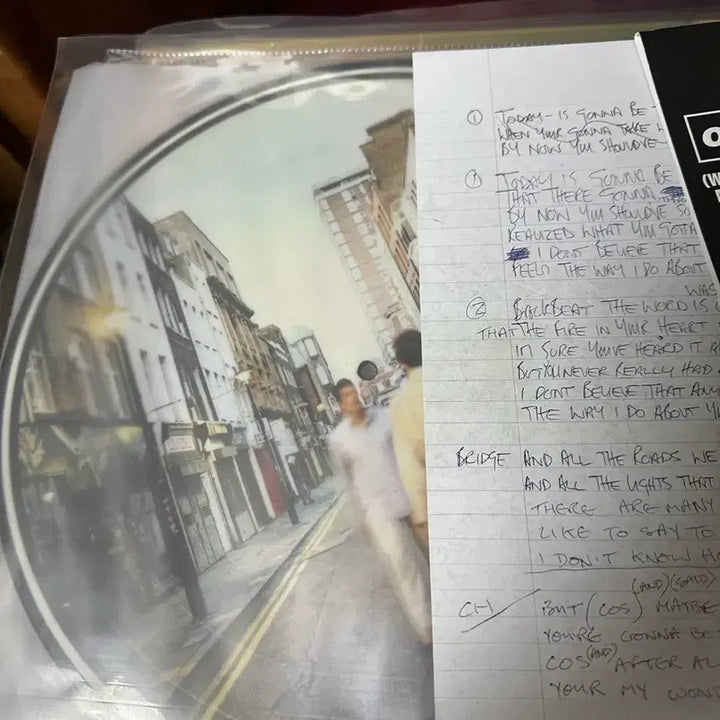 ① TODAY IS GONNA BE
WHEN YOUR GONNA TAKE
BY NOW YOU SHOULDVE
① TODAY IS GONNA BE
THAT THERE GONNA
BY NOW YOU SHOULDVE SO
REALIZED WHAT YOU GOTTA
I DONT BELIEVE THAT
FEELS THE WAY I DO ABOUT
WAS
② BACKBEAT THE WORD IS
THAT THE FIRE IN YOUR HEART
IM SURE YOUVE HEARD IT
BUT YOU NEVER REALLY HAD
I DONT BELIEVE THAT ANY
THE WAY I DO ABOUT YO
BRIDGE AND ALL THE ROADS WE
AND ALL THE LIGHTS THAT
THERE ARE MANY
LIKE TO SAY TO
I DON'T KNOW H
(AND) (SAID)
CH BUT (COS) MAYBE
YOU'RE GONNA BE
COS (AND) AFTER AL
YOUR MY WON